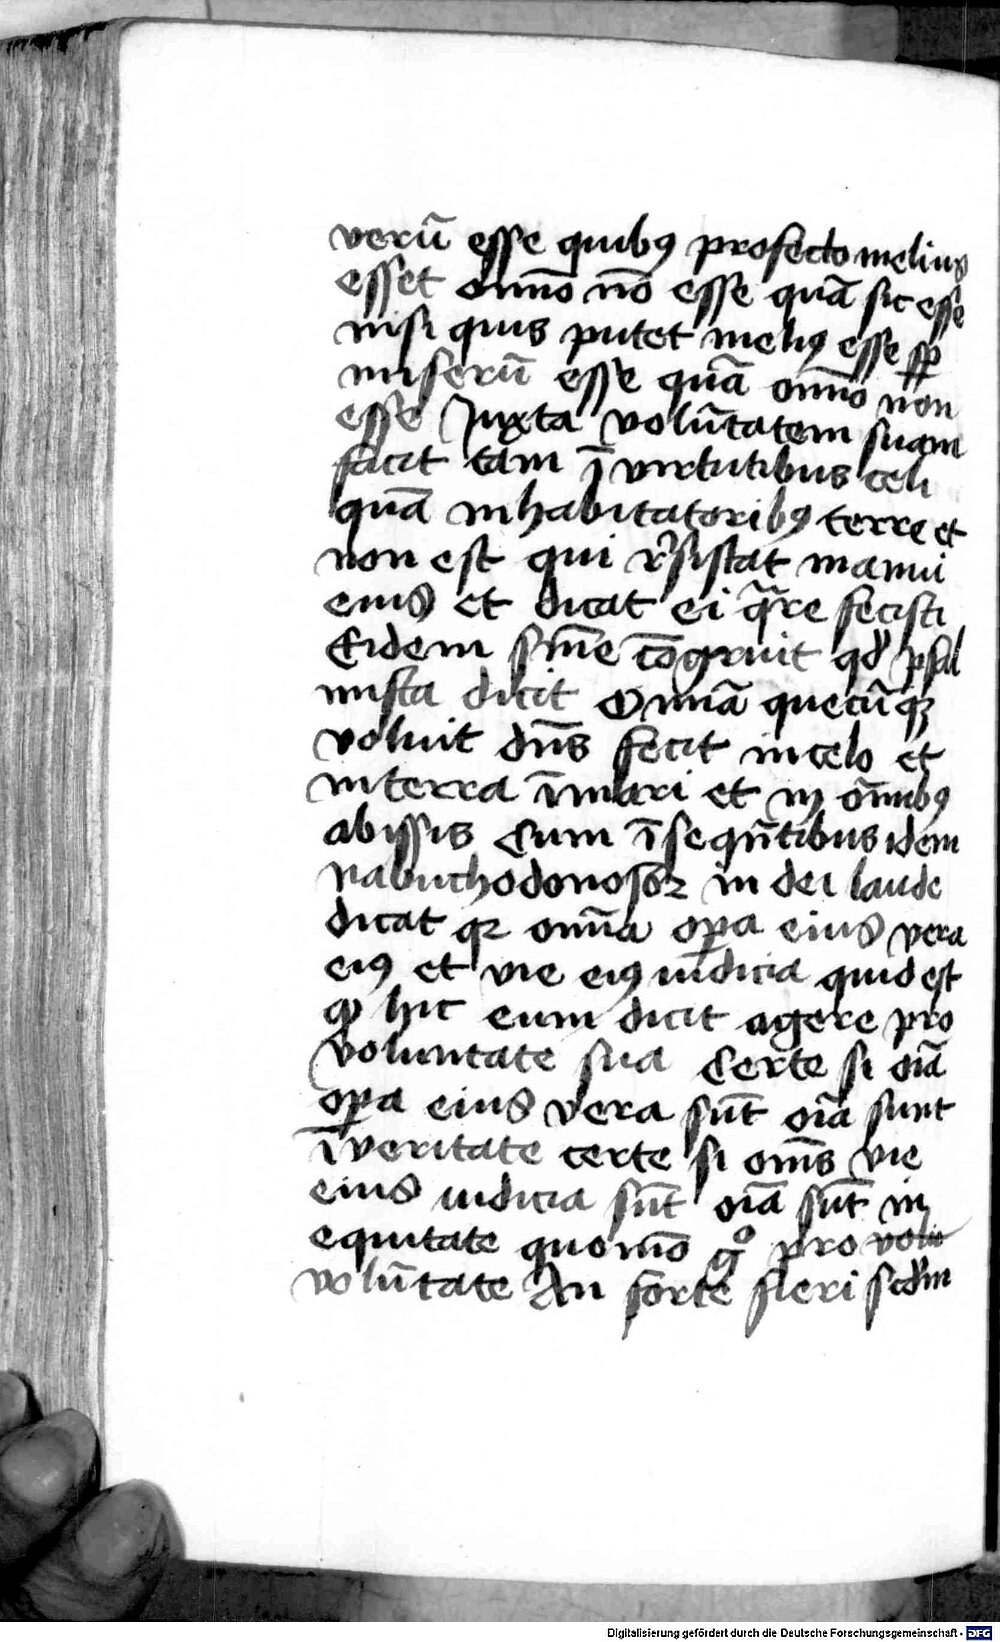 verū esse quibꝰ profecto melius
esset oīno nō esse quā sic esse
nisi quis putet meliꝰ esse sꝑ
miserū esse quā oīno non
esse Juxta volūtatem suam
facit tam ī virtutibus celi
quā inhabitatoribꝰ terre et
non est qui rͤsistat manui
eius et dicat ei qͣre fecisti
Eidem sīne cōgruit qd̛ psal
mista dicit Omīa quecūqꝫ
voluit dn̄s fecit in celo et
in terra ī mari et in oīnibꝰ
abissis Cum ī sequn̄tibus idem
Nabuchodonosor in dei laude
dicat qꝛ omīa oꝑa eius vera
eiꝰ et vie eiꝰ iudicia quid est
ꝙ hic eum dicit agere pro
voluntate sua Certe si oīa
oꝑa eius vera sūt oīa sunt
ī veritate certe si om̄s vie
eius iudicia sūt oīa sūt in
equitate quomō gͦ pro volu
volūtate An forte fieri scd̛m